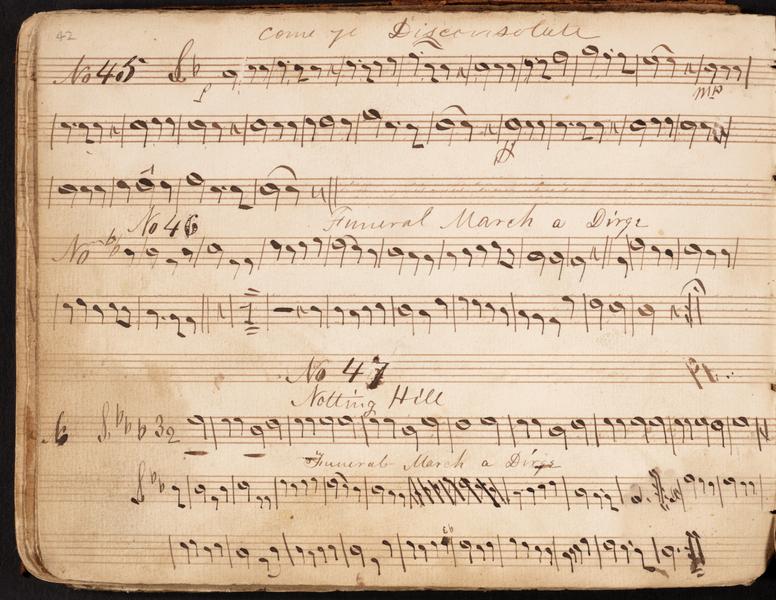 42
Come ye Disconsolate
No 45
P
mP
No 46
Funeral March a Dirge
No
No 47
Notting Hill
32
Funeral March a Dirge